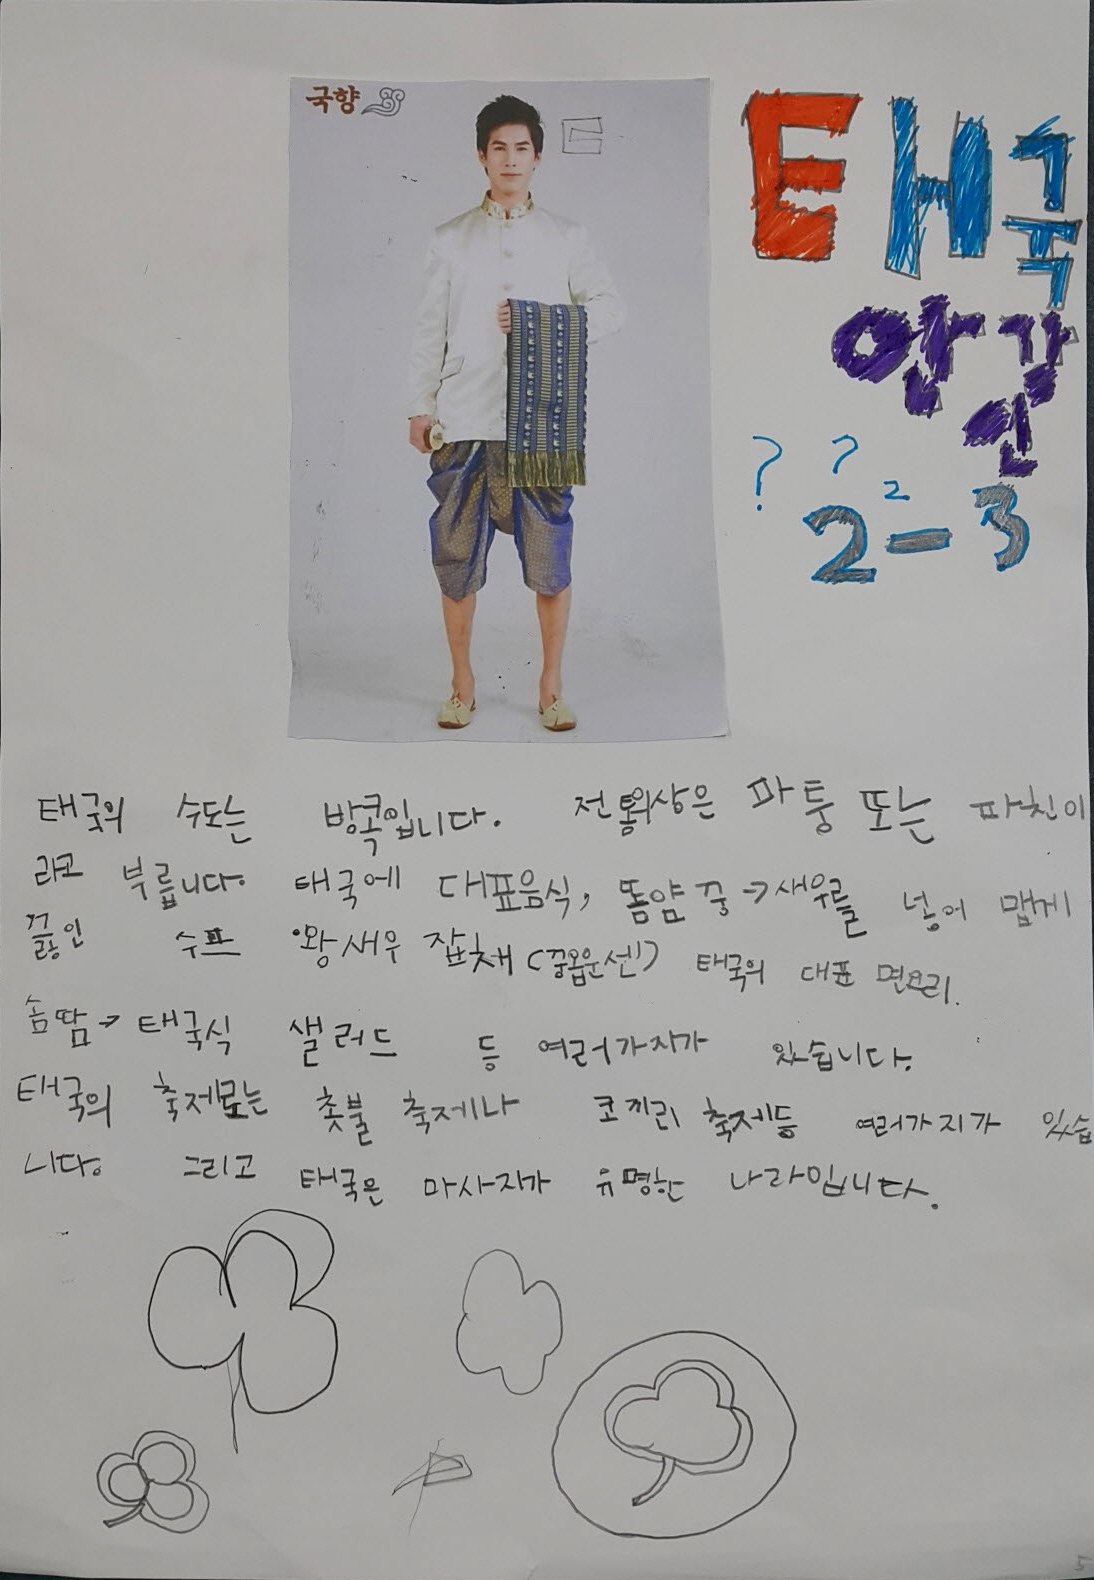 국향
태국
안강인
? ? 2
2-3
태국의 수도는 방콕입니다. 전통의상은 파퉁 또는 파친이
라고 부릅니다. 태국에 대표음식, 똠얌꿍→새우를 넣어 맵게
끓인 수프 왕새우 잡채(꿍옵운센) 태국의 대표 면요리.
솜땀→태국식 샐러드 등 여러가지가 있습니다.
태국의 축제로는 촛불 축제나 코끼리 축제등 여러가지가 있습
니다. 그리고 태국은 마사지가 유명한 나라입니다.